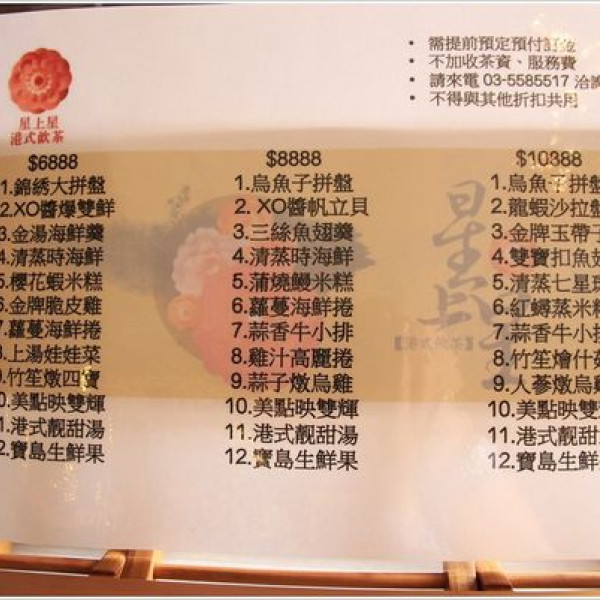 • 需提前預定預付訂金
• 不加收茶資、服務費
• 請來電 03-5585517 洽詢
• 不得與其他折扣共用
星上星
港式飲茶
$6888
1.錦綉大拼盤
2.XO醬爆雙鮮
3.金湯海鮮羹
4.清蒸時海鮮
5.櫻花蝦米糕
6.金牌脆皮雞
7.蘿蔓海鮮捲
8.上湯娃娃菜
9.竹笙燉四寶
0.美點映雙輝
1.港式靚甜湯
2.寶島生鮮果
$8888
1.烏魚子拼盤
2. XO醬帆立貝
3.三絲魚翅羹
4.清蒸時海鮮
5.蒲燒鰻米糕
6.蘿蔓海鮮捲
7.蒜香牛小排
8.雞汁高麗捲
9.蒜子燉烏雞
10.美點映雙輝
11.港式靚甜湯
12.寶島生鮮果
$10888
1.烏魚子拼盤
2.龍蝦沙拉盤
3.金牌玉帶子
4.雙寶扣魚翅
5.清蒸七星
6.紅蟳蒸米糕
7.蒜香牛小排
8.竹笙燴什
9.人蔘燉烏雞
10.美點映雙
11.港式靚甜湯
12.寶島生鮮果
星上星
【港式飲茶】